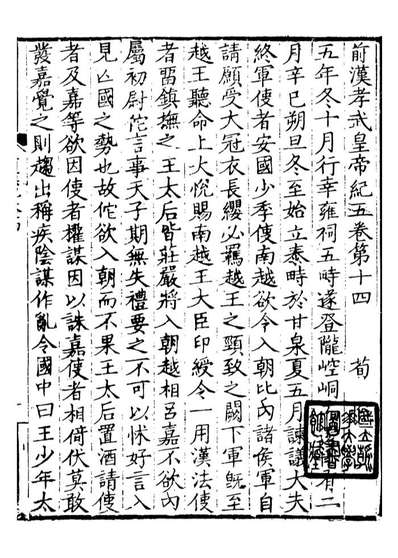 前漢孝武皇帝紀五卷第十四 荀
五年冬十月行幸雍祠五畤遂登隴崆峒
月辛巳朔旦冬至始立泰畤於甘泉夏五月諫議大夫
終軍使者安國少季使南越欲令入朝比內諸侯軍自
請願受大冠衣長纓必羈越王之頸致之闕下軍既至
越王聽命上大悅賜南越王大臣印綬令一用漢法使
者留鎮撫之王太后皆莊嚴將入朝越相呂嘉不欲內
屬初尉佗言事天子期無失禮要之不可以怵好言入
見亡國之勢也故佗欲入朝而不果王太后置酒請使
者及嘉等欲因使者權謀因以誅嘉使者相倚伏莫敢
發嘉覺之則趨出稱疾陰謀作亂令國中曰王少年太